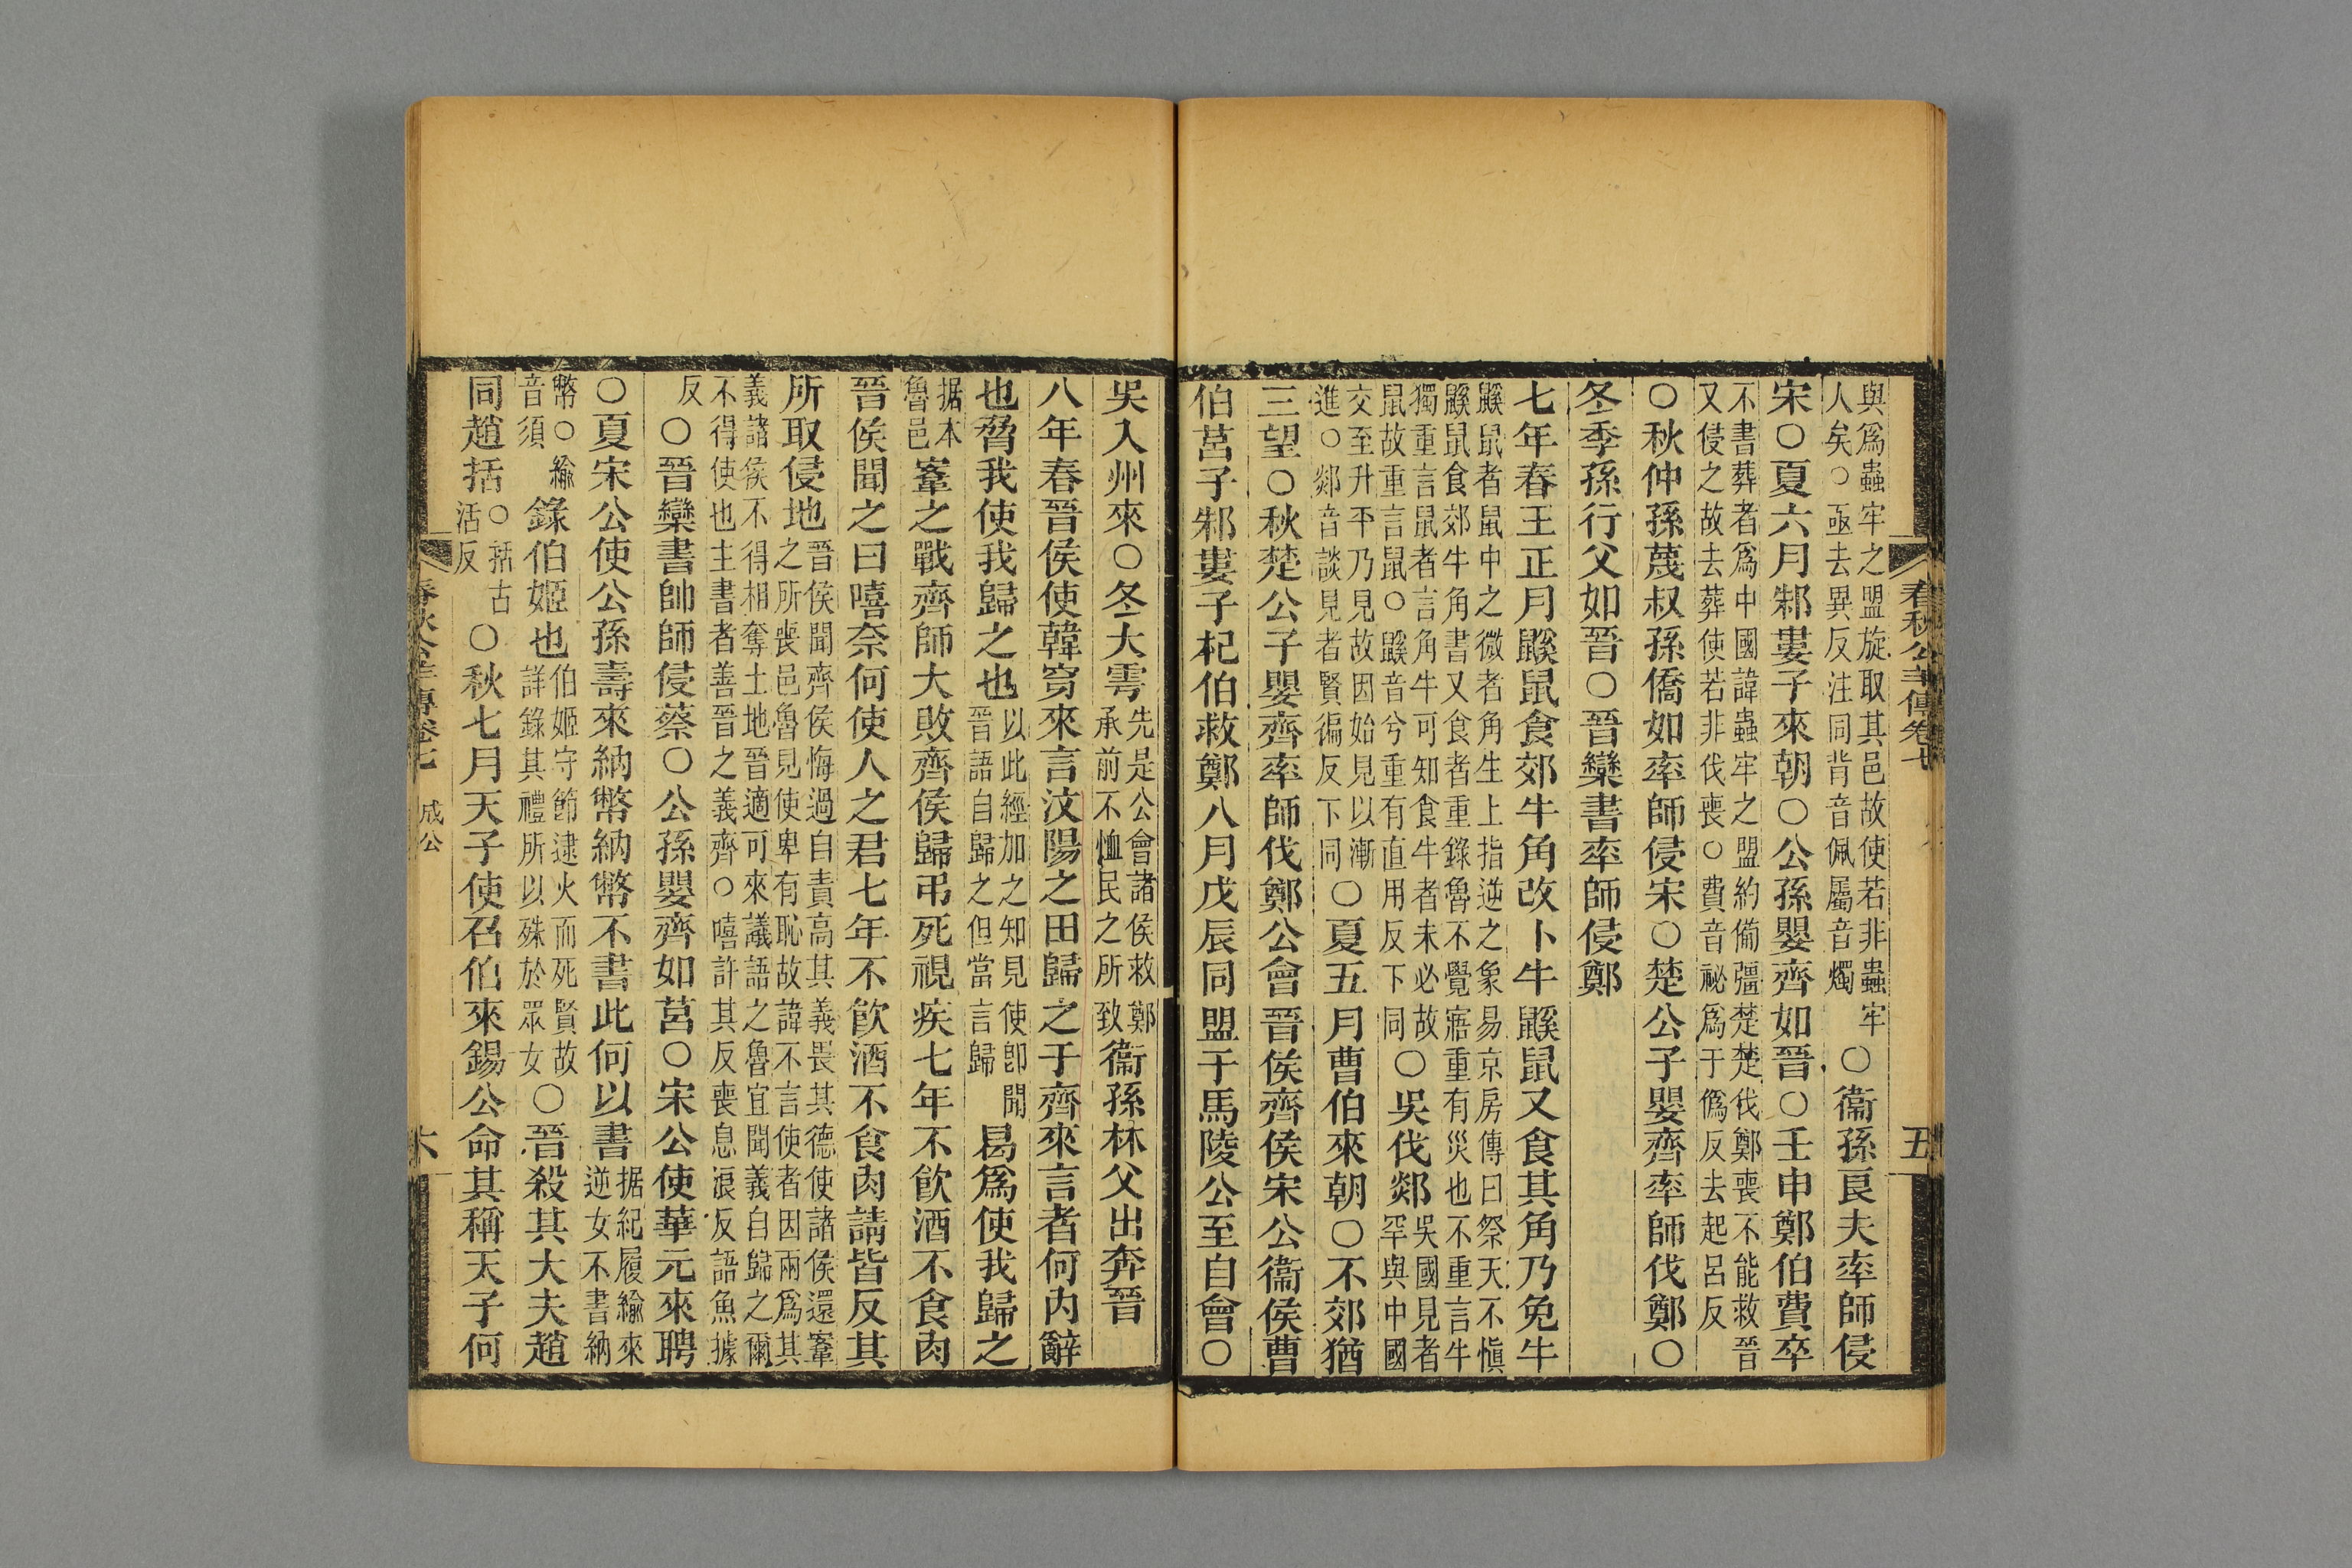 春秋公羊傳卷七
五
與爲蟲牢之盟旋取其邑故使若非蟲牢
人矣○亟去異反注同背音佩屬音燭
○衞孫良夫率師侵
宋○夏六月邾婁子來朝○公孫嬰齊如晉○壬申鄭伯費卒
不書葬者爲中國諱蟲牢之盟約備彊楚楚伐鄭喪不能救晉
又侵之故去葬使若非伐喪○費音祕爲于僞反去起呂反
○秋仲孫蔑叔孫僑如率師侵宋○楚公子嬰齊率師伐鄭○
冬季孫行父如晉○晉欒書率師侵鄭
七年春王正月鼷鼠食郊牛角改卜牛鼷鼠又食其角乃免牛
鼷鼠者鼠中之微者角生上指逆之象易京房傳曰祭天不愼
鼷鼠食郊牛角書又食者重錄魯不覺寤重有災也不重言牛
獨重言鼠者言角牛可知食牛者未必故
鼠故重言鼠○鼷音兮重有直用反下同
○吳伐郯
吳國見者
罕與中國
交至升平乃見故因始見以漸
進○郯音談見者賢徧反下同
○夏五月曹伯來朝○不郊猶
三望○秋楚公子嬰齊率師伐鄭公會晉侯齊侯宋公衞侯曹
伯莒子邾婁子杞伯救鄭八月戊辰同盟于馬陵公至自會○
吳入州來○冬大雩
先是公會諸侯救鄭
承前不恤民之所致
衞孫林父出奔晉
八年春晉侯使韓穿來言汶陽之田歸之于齊來言者何內辭
也脅我使我歸之也
以此經加之知見使卽聞
晉語自歸之但當言歸
曷爲使我歸之
据本
魯邑
鞌之戰齊師大敗齊侯歸弔死視疾七年不飮酒不食肉
晉侯聞之曰嘻奈何使人之君七年不飮酒不食肉請皆反其
所取侵地
晉侯聞齊侯悔過自責高其義畏其德使諸侯還鞌
之所喪邑魯見使卑有恥故諱不言使者因兩爲其
義諸侯不得相奪土地晉適可來議語之魯宜聞義自歸之爾
不得使也主書者善晉之義齊○嘻許其反喪息浪反語魚據
反
○晉欒書帥師侵蔡○公孫嬰齊如莒○宋公使華元來聘
○夏宋公使公孫壽來納幣納幣不書此何以書
据紀履緰來
逆女不書納
幣○緰
音須
錄伯姬也
伯姬守節逮火而死賢故
詳錄其禮所以殊於眾女
○晉殺其大夫趙
同趙括
○括古
活反
○秋七月天子使召伯來錫公命其稱天子何
春秋公羊傳卷七
成公
六